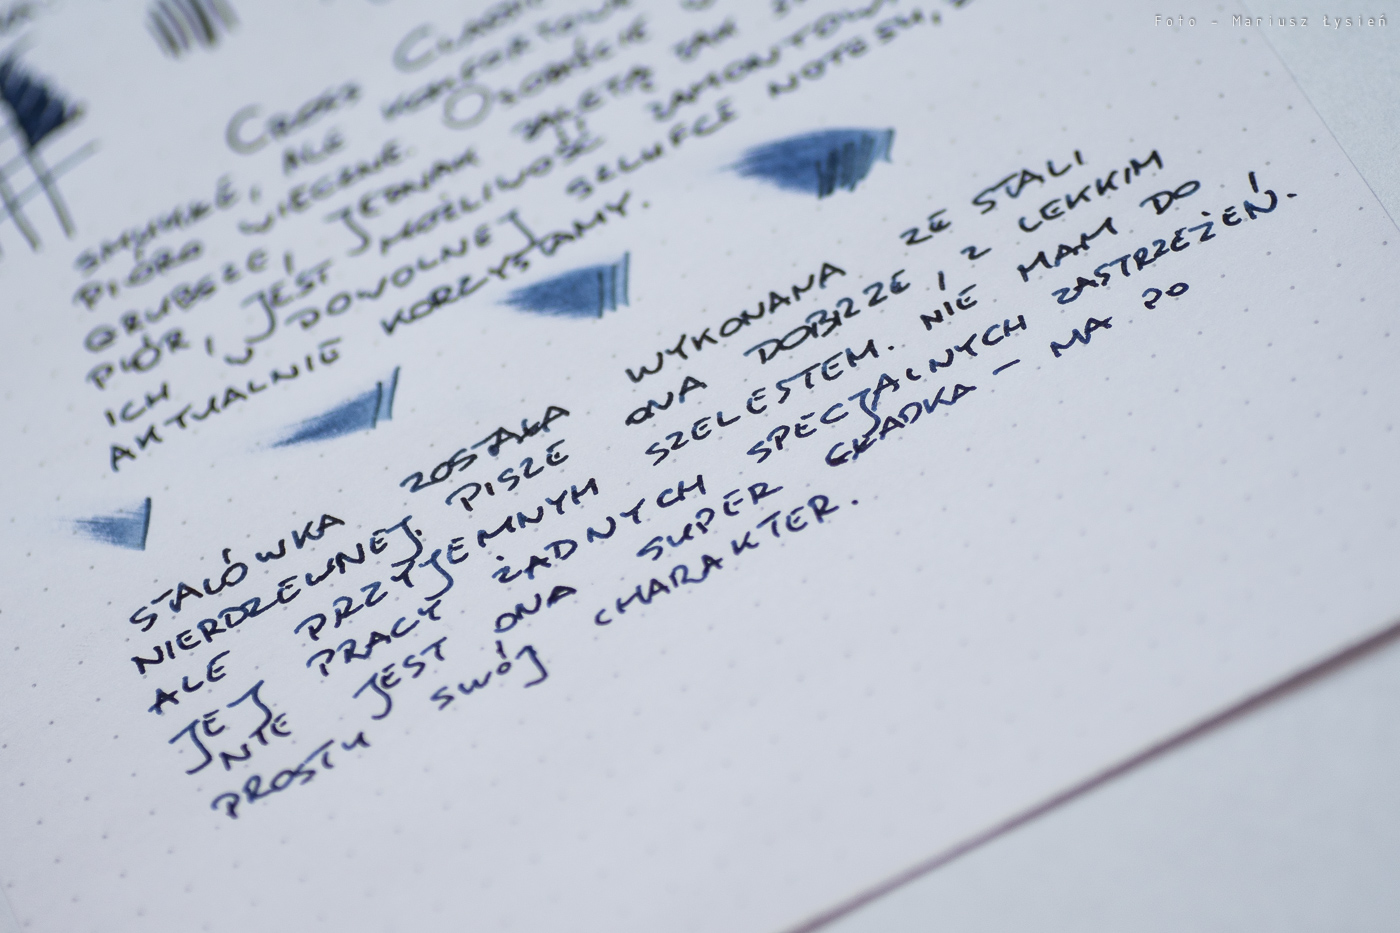 Foto - Mariusz Łysień
Cross
ALE
PIÓRO WIECZNE.
GRUBSZE, JEDNAK ZALETĄ
PIÓR, JEST MOŻLIWOŚĆ
ICH W DOWOLNEJ SZLUFCE NOTESU,
AKTUALNIE KORZYSTAMY.
STALÓWKA ZOSTAŁA WYKONANA ZE STALI
NIERDZEWNEJ. PISZE ONA DOBRZE I Z LEKKIM
ALE PRZYJEMNYM SZELESTEM. NIE MAM DO
JEJ PRACY ŻADNYCH SPECJALNYCH ZASTRZEŻEŃ.
NIE JEST ONA SUPER GŁADKA – MA PO
PROSTU SWÓJ CHARAKTER.